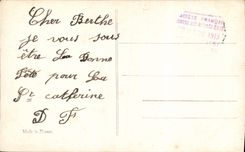 Cher Berthe
je vous sous
être La Bonne
Fête pour La
Ste catherine
D F
Made in France